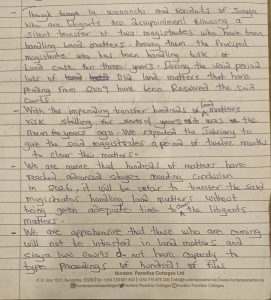 - Though bunge la wananchi and residents of Siaya
who are litigants are disappointed following a
silent transfer of two magistrates who have been
handling Land matters. Among them the Principal
magistrate who had been handling bulk of
Land case for three years. During the said period
lots of old land matters that have
pending from 2009 have been Resolved the said
courts.
- With the impending transfer hundreds of land matters
risk stalling for several years as it was the
years ago. We expected the Judiciary to
give the said magistrates a period of twelve months
to clear their matters.
- We are aware that hundreds of matters have
reached advanced stages awaiting conclusion
in Siaya, it will be unfair to transfer the said
magistrates handling land matters without
being given adequate time to clear the litigants
matters.
- We are apprehensive that those who are coming
will not be interested in land matters and
siaya two courts do not have capacity to
type proceedings of hundreds of files
Hunters Paradise Cottages Ltd
Hunters Paradise Cottages